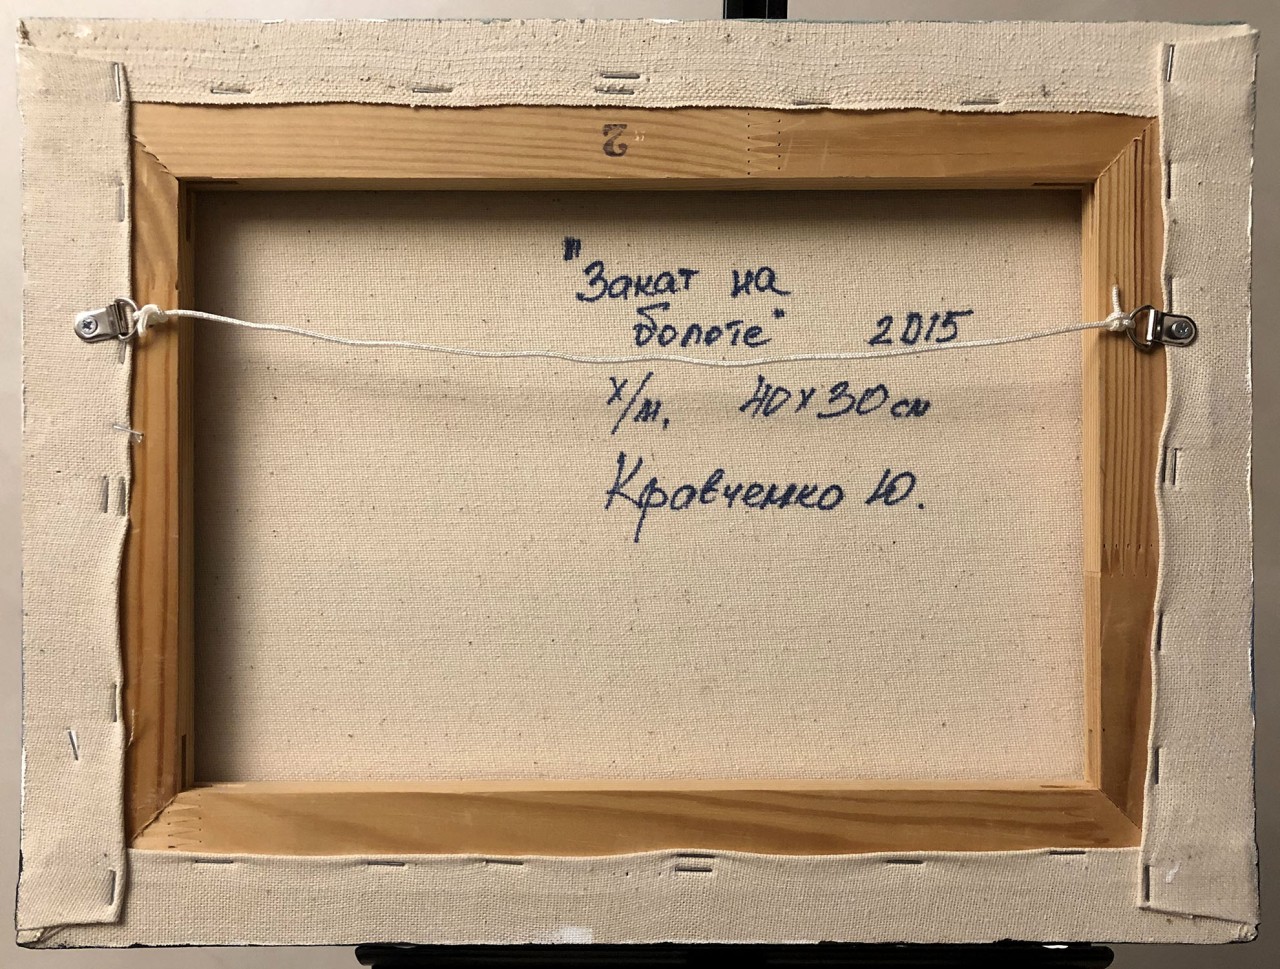 2
"Закат на
болоте" 2015
х/м, 40х30см
Кравченко Ю.